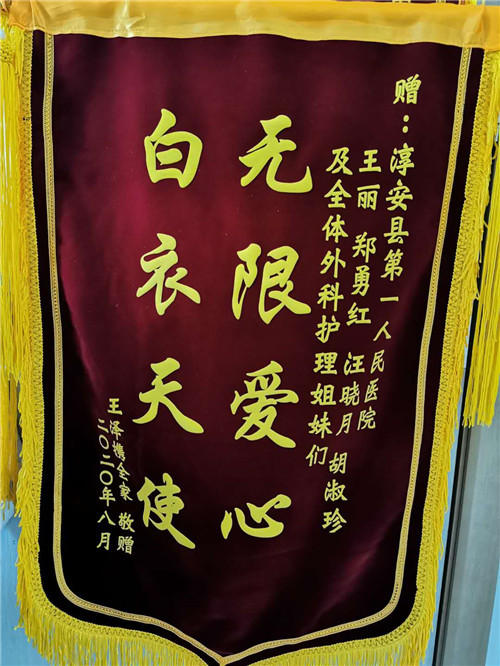 赠：淳安县第一人民医院
王丽 郑勇红 汪晓月 胡淑珍
及全体外科护理姐妹们
无限爱心
白衣天使
王泽携全家 敬赠
二〇二〇年八月